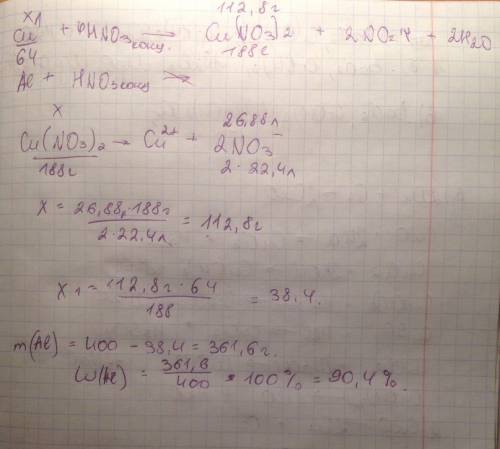 x1 112,8г
Cu + 4HNO3конц. → Cu(NO3)2 + 2NO2↑ + 2H2O
64 188г
Al + HNO3конц
x 26,88л
Cu(NO3)2 → Cu2+ + 2NO3-
188г 2·22,4л
x = 26,88·188г / 2·22,4л = 112,8г
x1 = 112,8г·64 / 188 = 38,4.
m(Al) = 400 - 38,4 = 361,6г.
W(Al) = 361,6 / 400 · 100% = 90,4%.